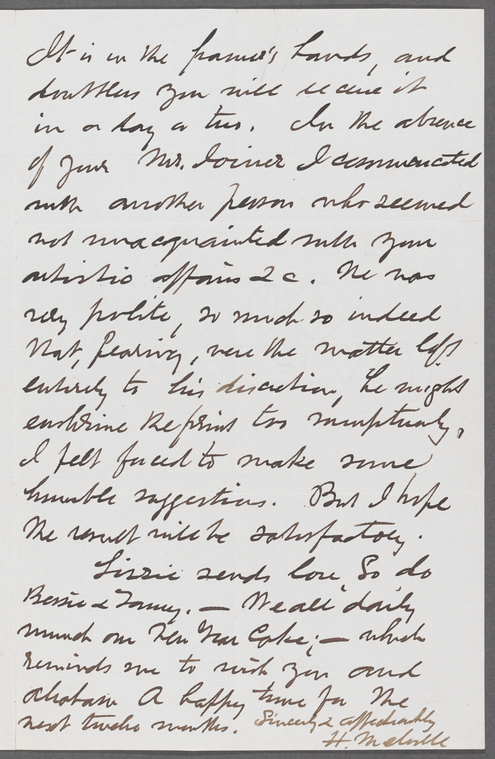 It is in the framer's hands, and
doubtless you will receive it
in a day or two. In the absence
of your Mr. Joiner I communicated
with another person who seemed
not unacquainted with your
artistic affairs &c. He was
very polite, so much so indeed
that, fearing, were the matter left
entirely to his discretion, he might
enshrine the print too sumptuously,
I felt forced to make some
humble suggestions. But I hope
the result will be satisfactory.
Lizzie sends love So do
Bessie & Fanny. — We all daily
munch our New Year Cake; — which
reminds me to wish you and
Abraham A happy time for the
next twelve months. Sincerely & affectionately
H. Melville